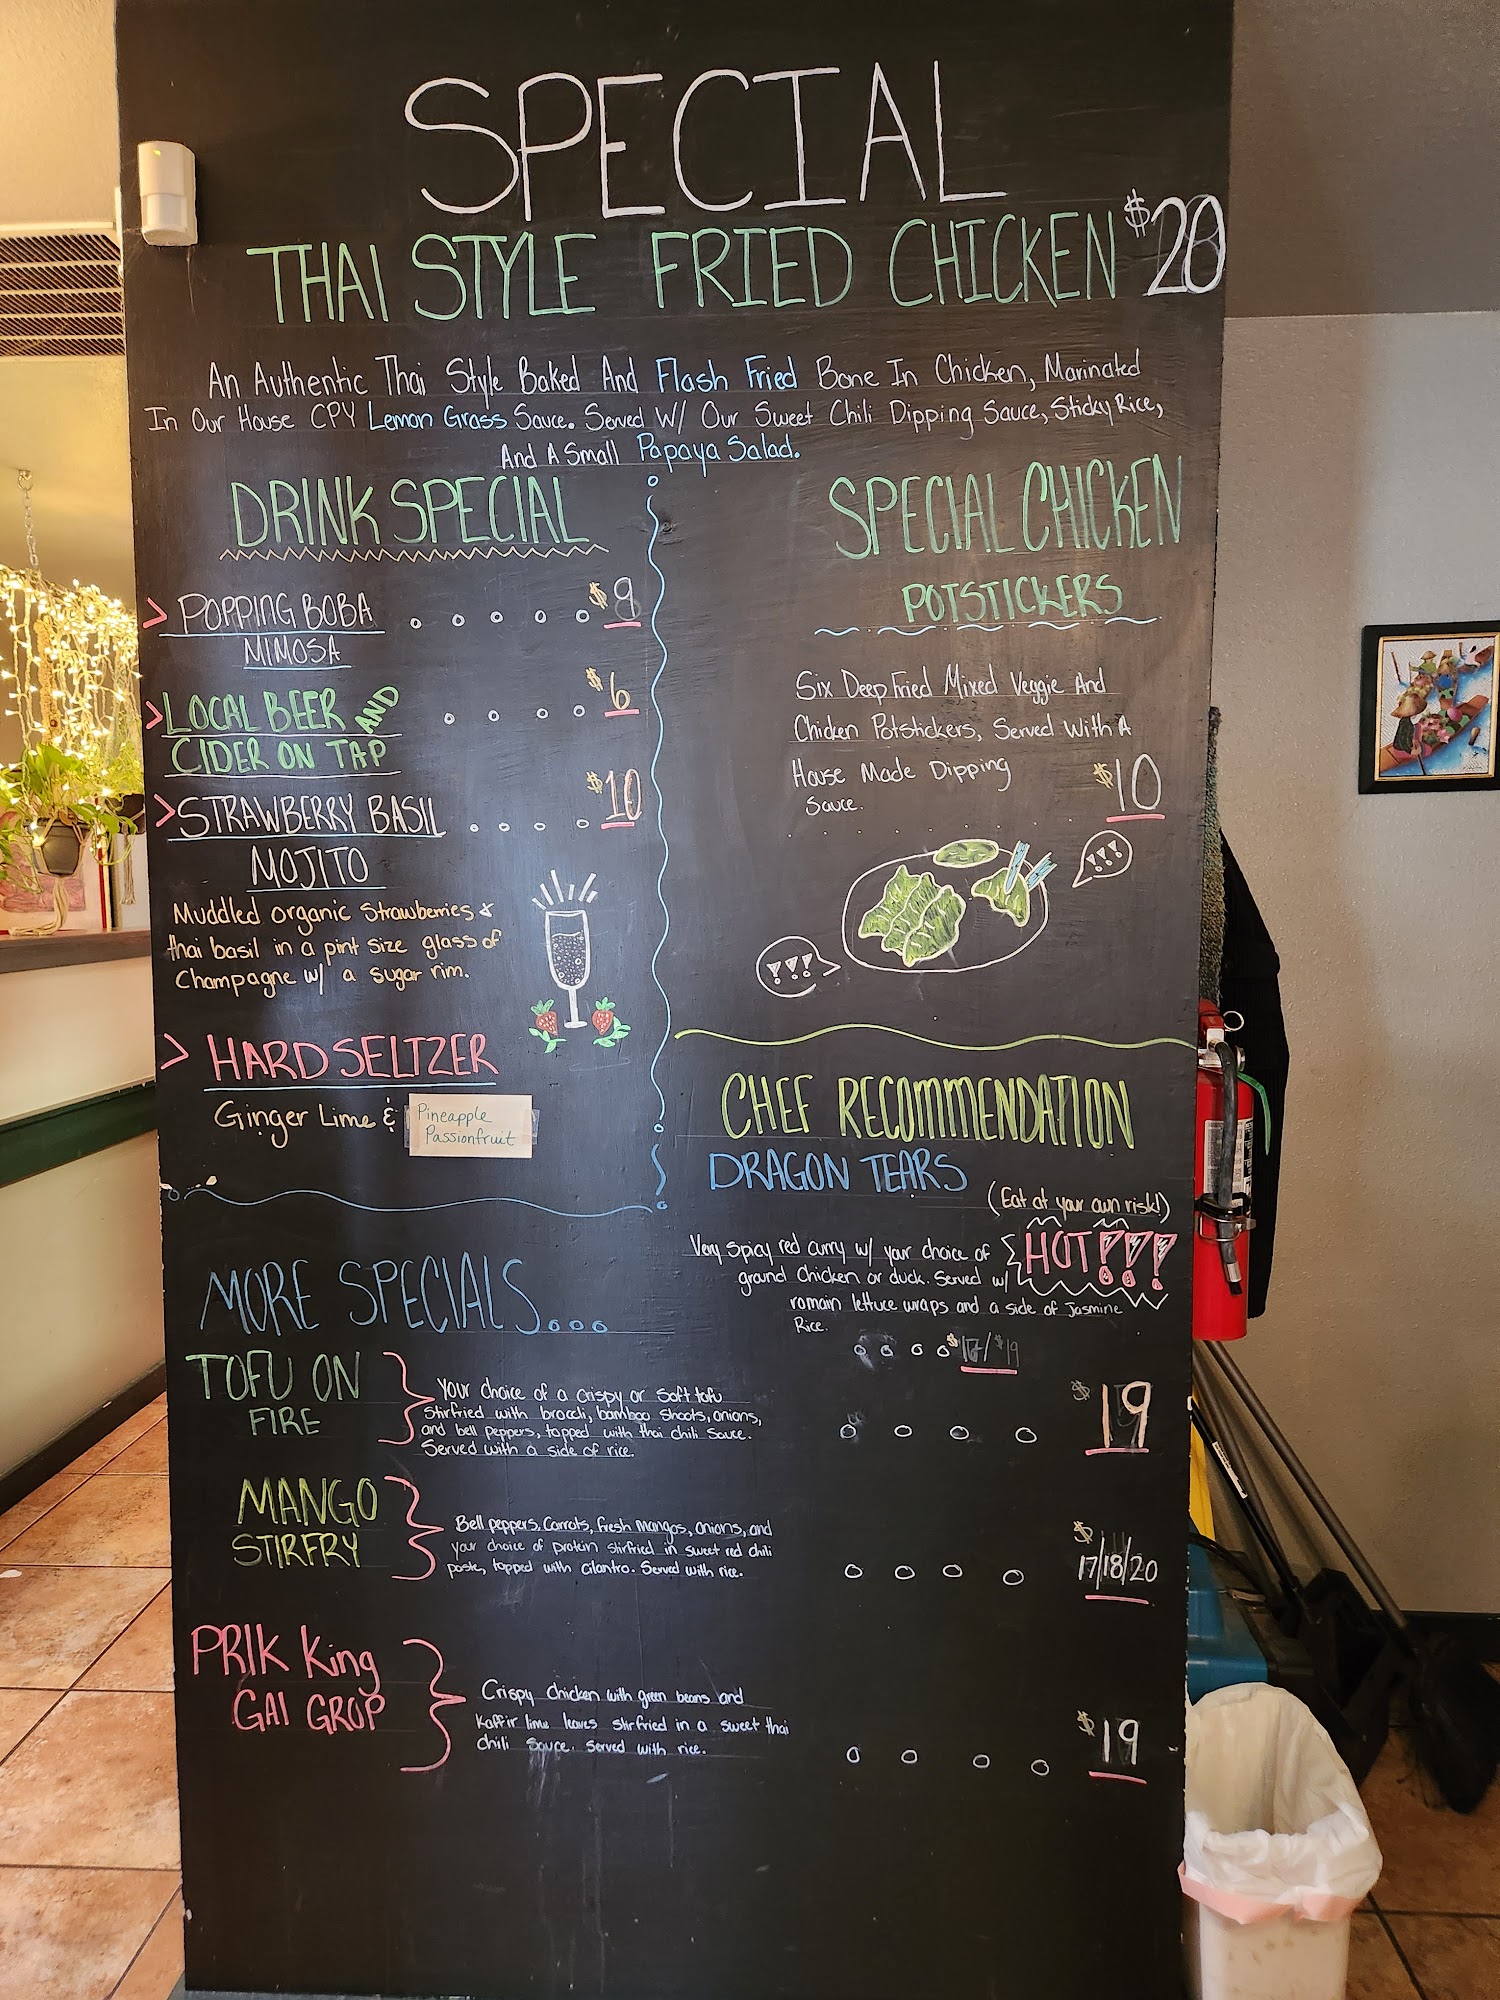 SPECIAL
THAI STYLE FRIED CHICKEN $20
An Authentic Thai Style Baked And Flash Fried Bone In Chicken, Marinated
In Our House CPY Lemon Grass Sauce. Served W/ Our Sweet Chili Dipping Sauce, Sticky Rice,
And A Small Papaya Salad.
DRINK SPECIAL
> POPPING BOBA $9
MIMOSA
> LOCAL BEER AND $6
CIDER ON TAP
> STRAWBERRY BASIL $10
MOJITO
Muddled organic Strawberries &
thai basil in a pint size glass of
Champagne w/ a sugar rim.
> HARD SELTZER
Ginger Lime & Pineapple
Passionfruit
SPECIAL CHICKEN
POTSTICKERS
Six Deep Fried Mixed Veggie And
Chicken Potstickers, Served With A
House Made Dipping
Sauce. $10
!!!
!!!
CHEF RECOMMENDATION
DRAGON TEARS
(Eat at your own risk!)
Very Spicy red curry w/ your choice of HOT!!!
ground Chicken or duck. Served w/
romain lettuce wraps and a side of Jasmine
Rice.
$17/$19
MORE SPECIALS...
TOFU ON
FIRE
Your choice of a crispy or soft tofu
Stirfried with broccli, bamboo shoots, onions,
and bell peppers, topped with thai chili sauce.
Served with a side of rice.
$19
MANGO
STIRFRY
Bell peppers, Carrots, fresh mangos, onions, and
your choice of protein stirfried in sweet red chili
paste, topped with cilantro. Served with rice.
$
17/18/20
PRIK King
GAI GROP
Crispy chicken with green beans and
Kaffir lime leaves stirfried in a sweet thai
chili sauce. Served with rice.
$19